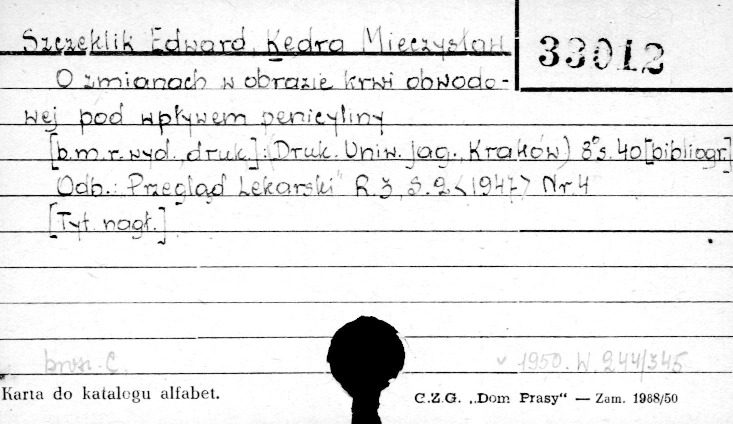 Szczeklik Edward, Kędra Mieczysław
33012
O zmianach w obrazie krwi obwodo-
wej pod wpływem penicyliny
[b.m.r.wyd., druk.]: (Druk. Uniw. Jag., Kraków) 8°s. 40 [bibliogr.]
Odb.: Przegląd Lekarski" R.3, S.2 <1947> Nr 4
[Tyt. nagł.]
brosz. C.
1950. W. 244/345
Karta do katalogu alfabet.
C.Z.G. „Dom Prasy“ — Zam. 1988/50